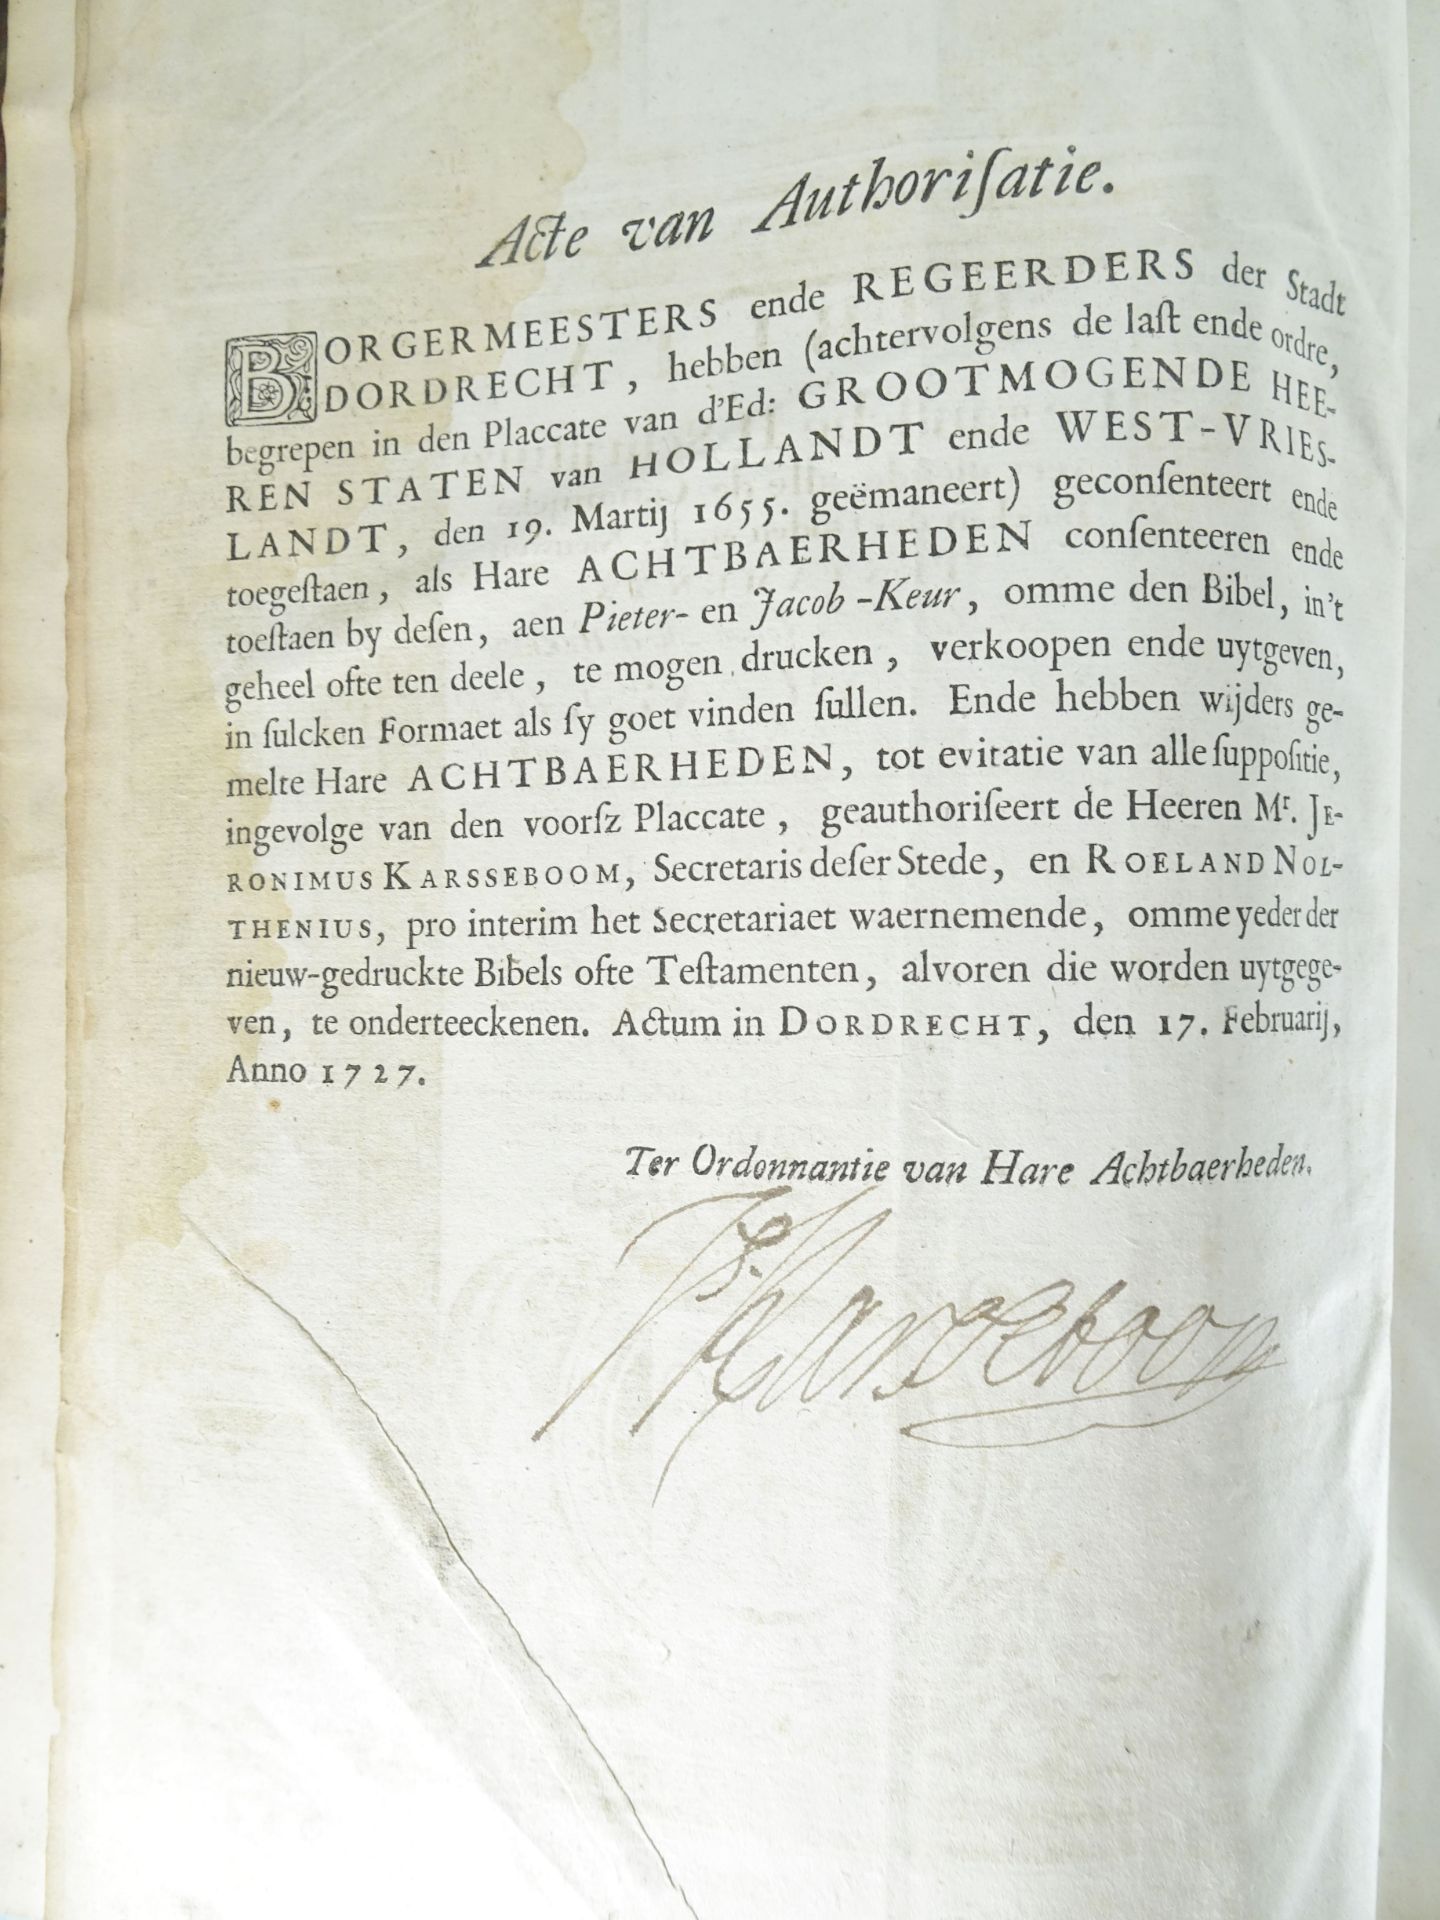 Acte van Authoriſatie.
BORGERMEESTERS ende REGEERDERS der Stadt
DORDRECHT, hebben (achtervolgens de laſt ende ordre,
begrepen in den Placcate van d'Ed: GROOTMOGENDE HEE-
REN STATEN van HOLLANDT ende WEST-VRIES-
LANDT, den 19. Martij 1655. geëmaneert) geconſenteert ende
toegeſtaen, als Hare ACHTBAERHEDEN conſenteeren ende
toeſtaen by deſen, aen Pieter- en Jacob-Keur, omme den Bibel, in't
geheel ofte ten deele, te mogen drucken, verkoopen ende uytgeven,
in ſulcken Formaet als ſy goet vinden ſullen. Ende hebben wijders ge-
melte Hare ACHTBAERHEDEN, tot evitatie van alle ſuppoſitie,
ingevolge van den voorſz Placcate, geauthoriſeert de Heeren Mr. JE-
RONIMUS KARSSEBOOM, Secretaris deſer Stede, en ROELAND NOL-
THENIUS, pro interim het Secretariaet waernemende, omme yeder der
nieuw-gedruckte Bibels ofte Teſtamenten, alvoren die worden uytgege-
ven, te onderteeckenen. Actum in DORDRECHT, den 17. Februarij,
Anno 1727.
Ter Ordonnantie van Hare Achtbaerheden.
Karsseboom